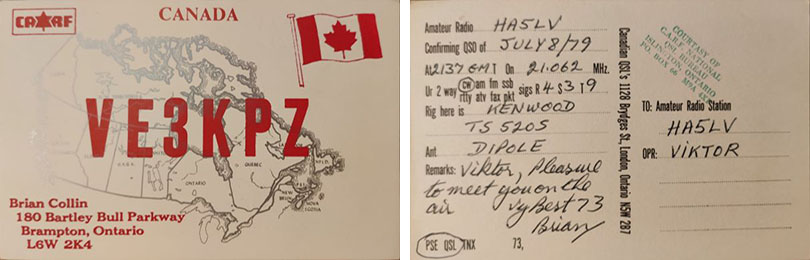 CARF
CANADA
VE3KPZ
ONTARIO
QUEBEC
NFLD.
NOVA
SCOTIA
Brian Collin
180 Bartley Bull Parkway
Brampton, Ontario
L6W 2K4
Amateur Radio HA5LV
Confirming QSO of JULY 8/79
At 2137 GMT On 21.062 MHz.
Ur 2 way CW am fm ssb sigs R 4 S 3 T 9
rtty atv fax pkt
Rig here is KENWOOD
TS 520S
Ant DIPOLE
Remarks: Viktor, Pleasure
to meet you on the
air vy Best 73
Brian
PSE QSL TNX 73,
Canadian QSL's 1128 Brydges St., London, Ontario N5W 2B7
COURTESY OF
C.A.R.F. NATIONAL
QSL BUREAU
ISLINGTON, ONTARIO
P.O. BOX 66 M9A 4X1
TO: Amateur Radio Station
HA5LV
OPR: VIKTOR